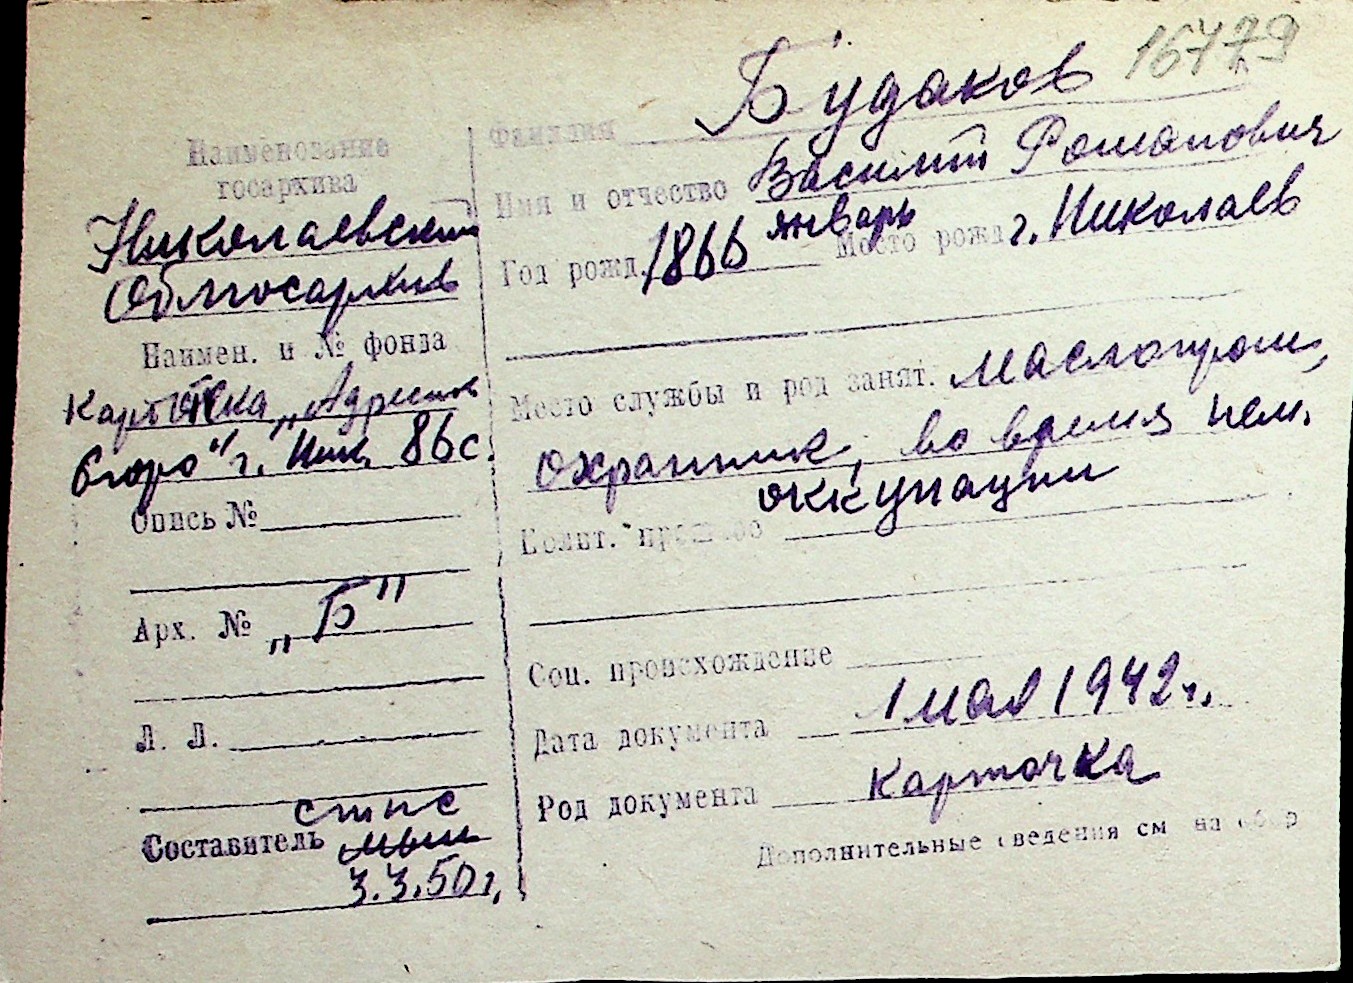 16479
Наименование
госархива
Николаевский
Облгосархив
Наимен. и № фонда
Картотека „Адресное
бюро" г. Ник. 86с.
Опись №
Арх. № „Б"
Л. Л.
Составитель
3.3.50г.
Фамилия Будаков
Имя и отчество Василий Романович
Год рожд. 1866 январь Место рожд г. Николаев
Место службы и род занят. Маслопром,
охранник, во время нем.
оккупации
Полит. прошлое
Соц. происхождение
Дата документа 1 мая 1942 г.
Род документа Карточка
Дополнительные сведения см на обор